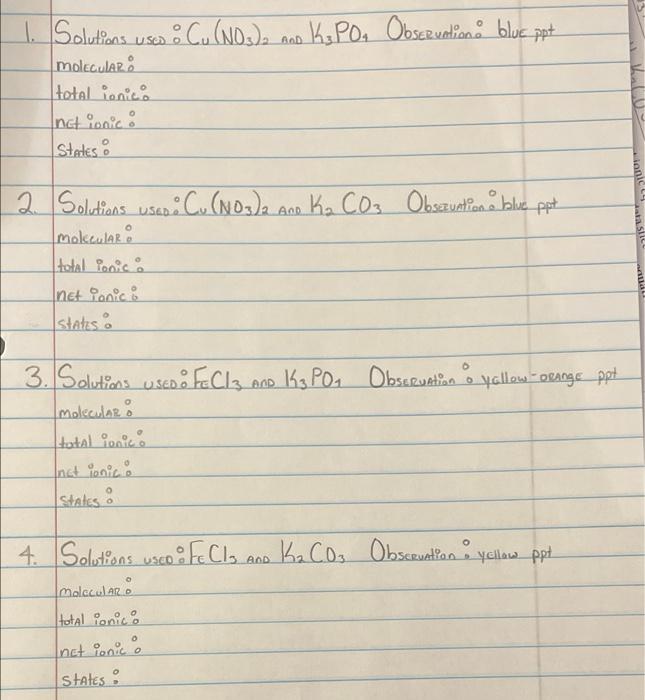 1. Solutions used: Cu(NO3)2 AND K3PO4 Observation: blue ppt
molecular:
total ionic:
net ionic:
States:
2. Solutions used: Cu(NO3)2 AND K2CO3 Observation: blue ppt
molecular:
total ionic:
net ionic:
states:
3. Solutions used: FeCl3 AND K3PO4 Observation: yellow-orange ppt
molecular:
total ionic:
net ionic:
States:
4. Solutions used: FeCl3 AND K2CO3 Observation: yellow ppt
molecular:
total ionic:
net ionic:
States: